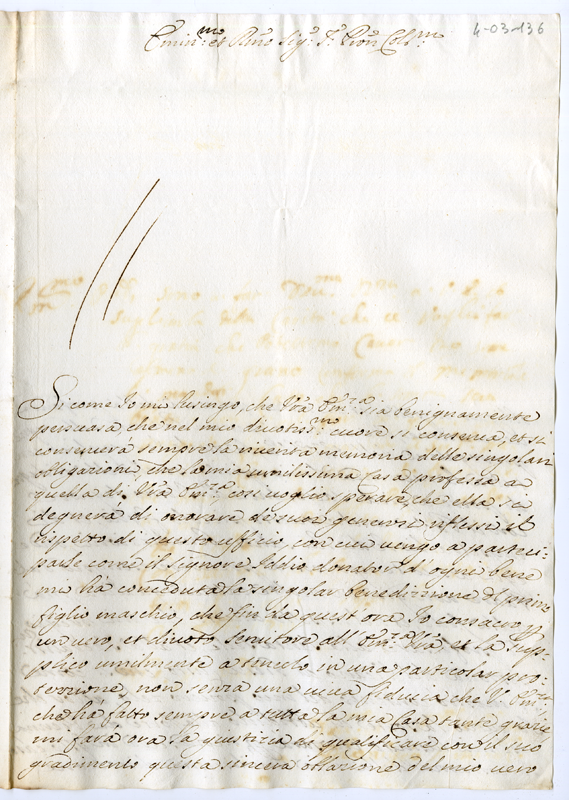 4-03-136
Emin.mo et Rmo Sig.r Pron Col.mo
Si come Io mi lusingo, che Vra Em.za sia benignamente
persuasa, che nel mio divotiss.mo cuore si conserva, et si
conserverà sempre la riverita memoria delle singolari
obligazioni, che la mia umilissima Casa professa a
quella di Vra Em.za così voglio sperare, che ella si
degnerà di onorare de suoi generosi riflessi il
rispetto di questo uffizio, con cui vengo a parteci-
parle come il Signore Iddio donator d'ogni bene
mi hà conceduta la singolar benedizzione del primo
figlio maschio, che fin da quest'ora Io consacro p
un vero, et divoto servitore all'Em.za Vra et la sup-
plico umilmente a tenerlo in una particolar pro-
tezzione, non senza una viva fiducia che V. Em.za
che hà fatto sempre a tutta la mia Casa tante grazie
mi farà ora la giustizia di qualificare con il suo
gradimento questa sincera oblazione del mio vero